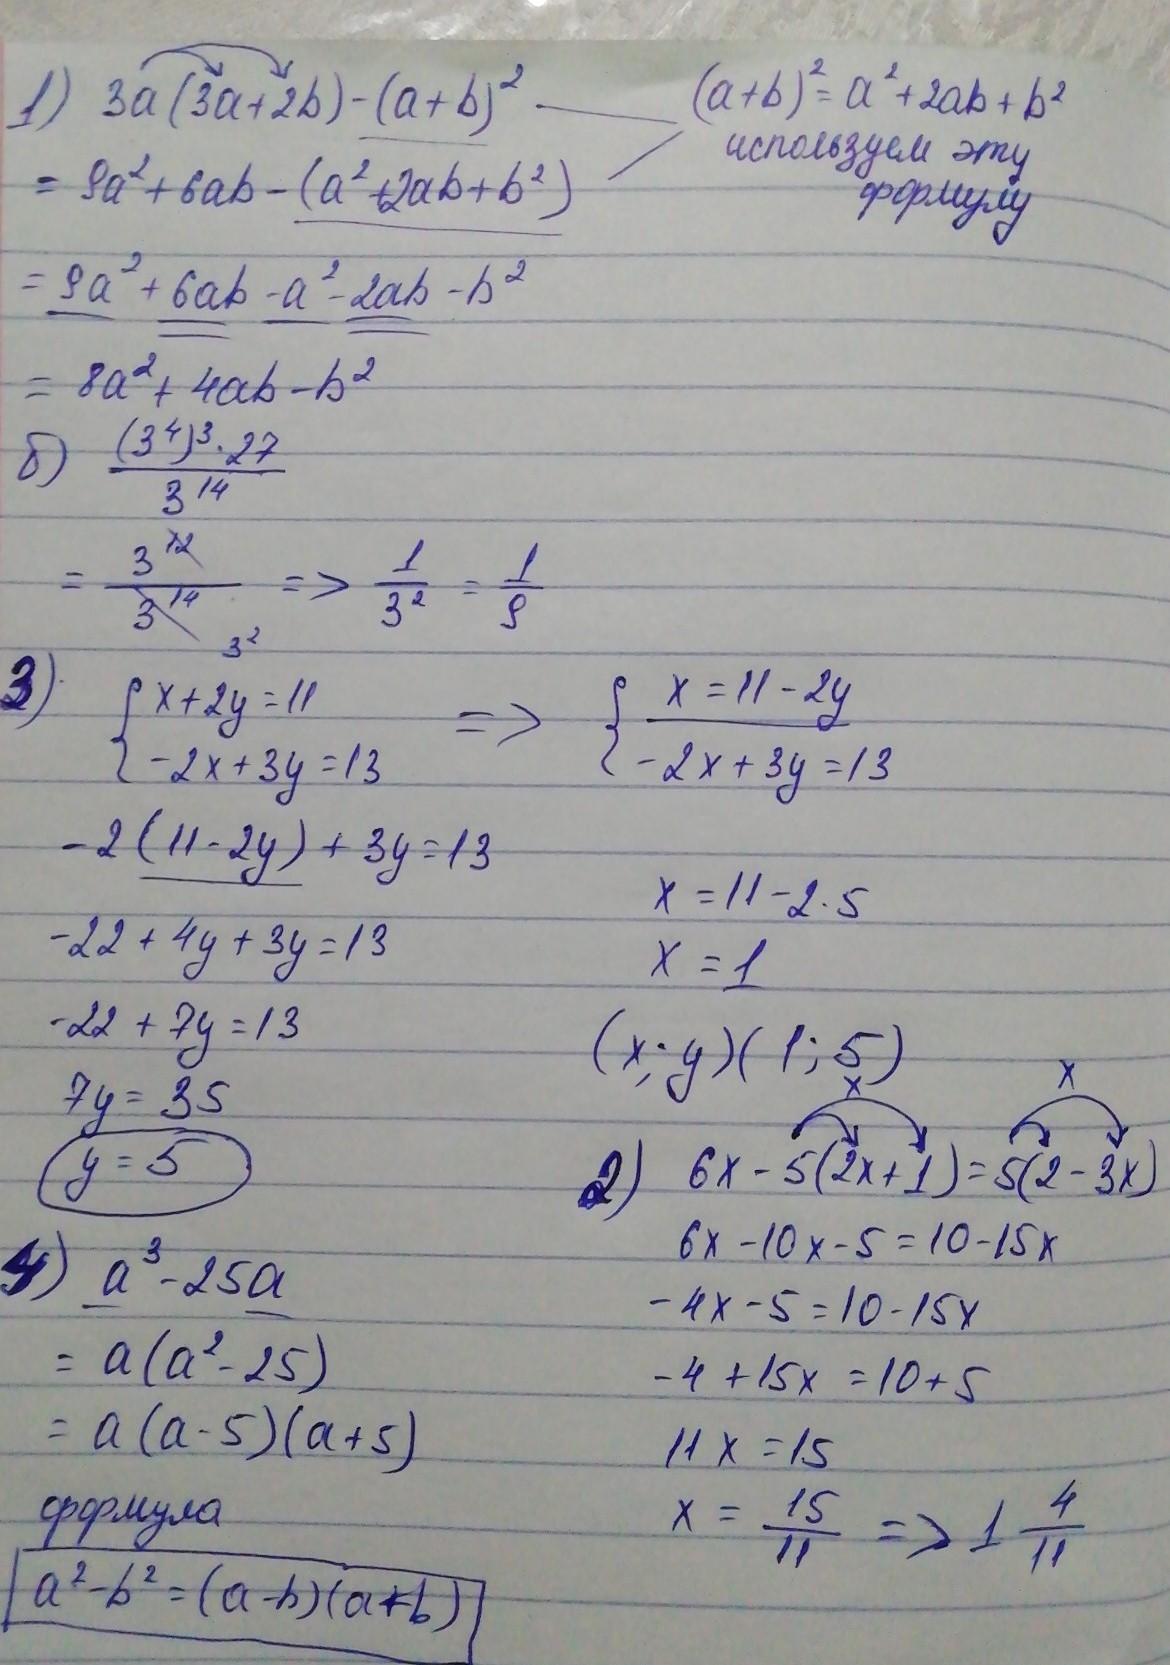 1) 3a(3a+2b)-(a+b)² (a+b)²=a²+2ab+b²
используем эту
формулу
= 9a²+6ab-(a²+2ab+b²)
= 9a²+6ab-a²-2ab-b²
= 8a²+4ab-b²
б) (3⁴)³·27 / 3¹⁴
= 3¹² / 3¹⁴ 3² => 1/3² = 1/9
3) { x+2y=11 => { x=11-2y
-2x+3y=13 -2x+3y=13
-2(11-2y)+3y=13
-22+4y+3y=13
-22+7y=13
7y=35
y=5
x=11-2·5
x=1
(x;y)(1;5)
x x
2) 6x-5(2x+1)=5(2-3x)
6x-10x-5=10-15x
-4x-5=10-15x
-4+15x=10+5
11x=15
x = 15/11 => 1 4/11
4) a³-25a
= a(a²-25)
= a(a-5)(a+5)
формула
a²-b²=(a-b)(a+b)